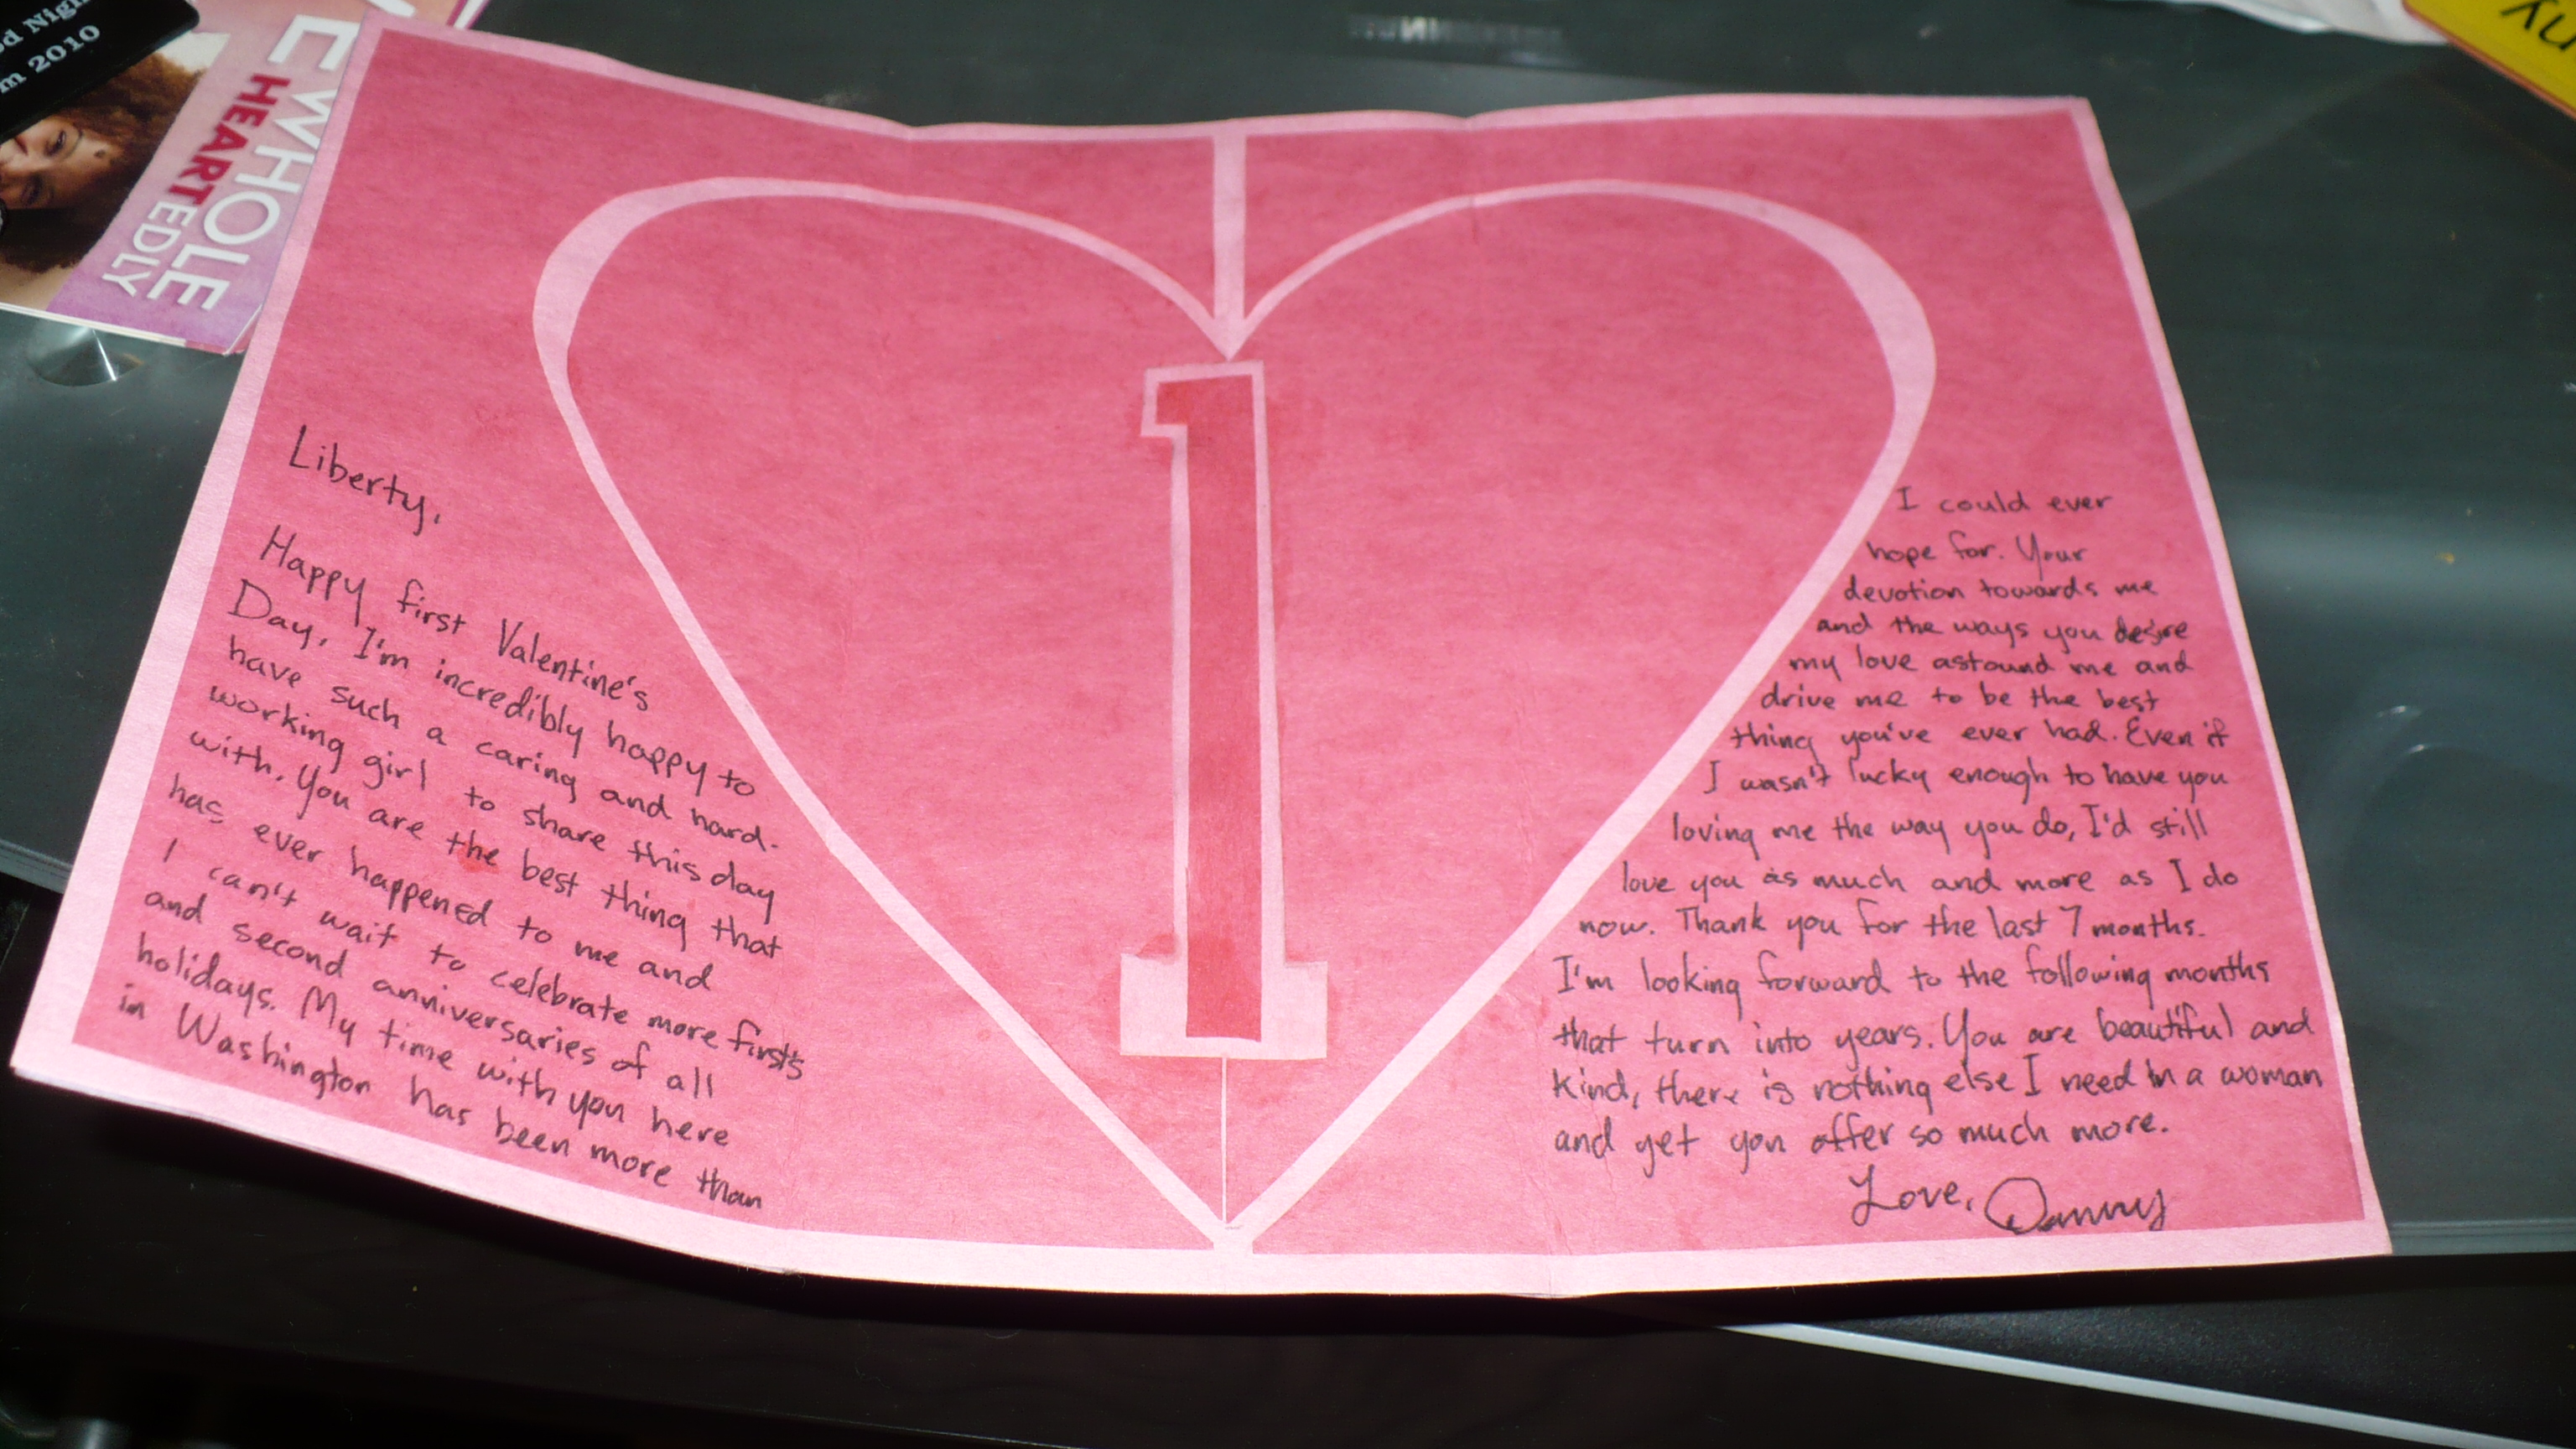 Liberty,
Happy first Valentine's
Day, I'm incredibly happy to
have such a caring and hard-
working girl to share this day
with. You are the best thing that
has ever happened to me and
I can't wait to celebrate more firsts
and second anniversaries of all
holidays. My time with you here
in Washington has been more than
1
I could ever
hope for. Your
devotion towards me
and the ways you desire
my love astound me and
drive me to be the best
thing you've ever had. Even if
I wasn't lucky enough to have you
loving me the way you do, I'd still
love you as much and more as I do
now. Thank you for the last 7 months.
I'm looking forward to the following months
that turn into years. You are beautiful and
kind, there is nothing else I need in a woman
and yet you offer so much more.
Love, Danny
WHOLE
HEARTEDLY
2010